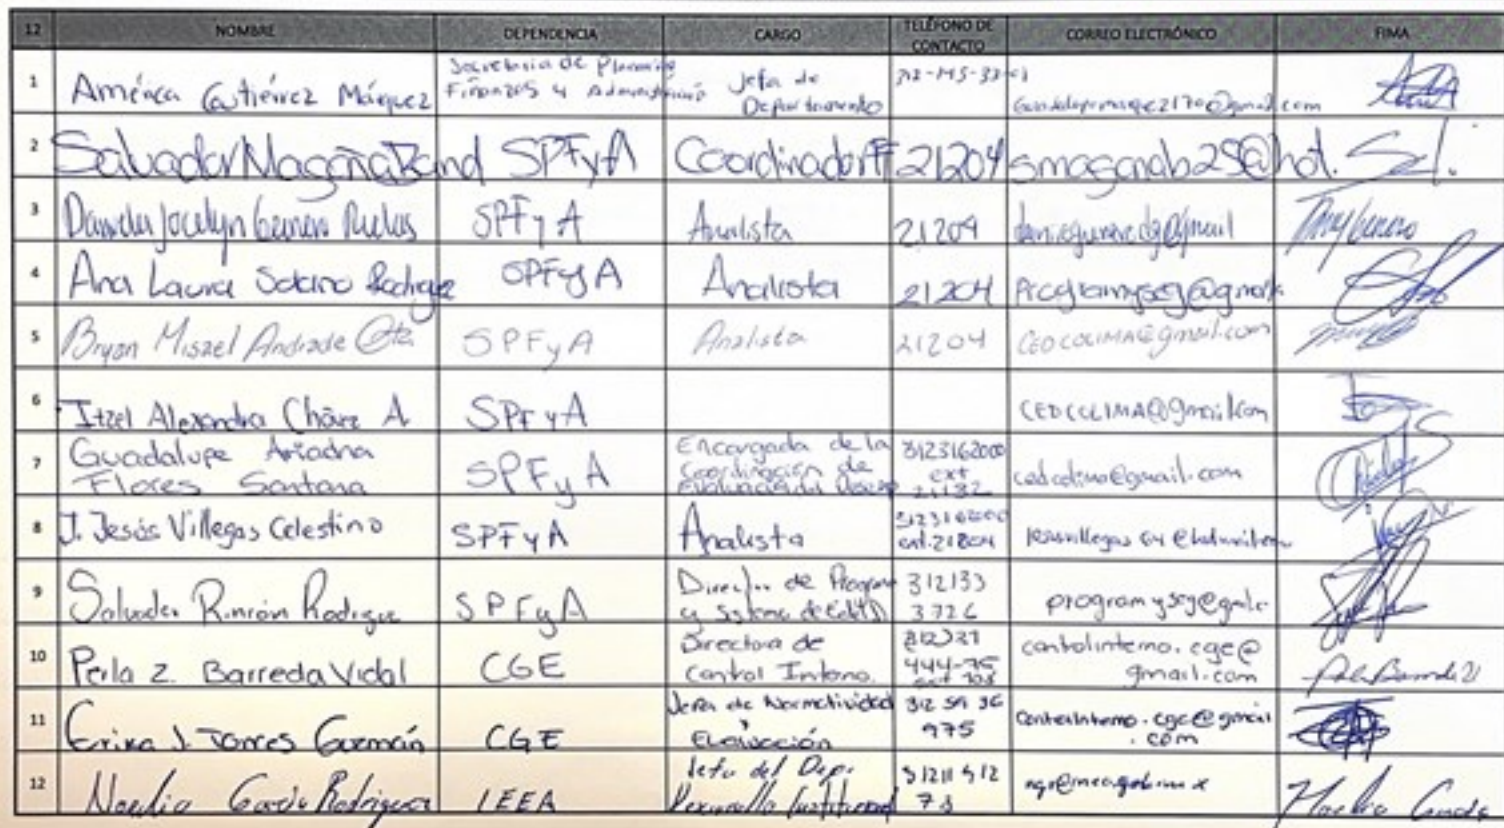 12 NOMBRE DEPENDENCIA CARGO TELÉFONO DE CONTACTO CORREO ELECTRÓNICO FIMA
1 América Gutiérrez Márquez Secretaria de Planeación Finanzas y Administración Jefa de Departamento
2 Salvador Magaña Band SPFyA Coordinador 21204 smaganab25@hot.
3 Daniela Jocelyn SPFyA Analista 21204
4 Ana Laura SPFyA Analista 21204 Programyseg@gmail
5 Bryan Miszel Andrade SPFyA Analista 21204 CEDCOLIMA@gmail.com
6 Itzel Alexandra Chávez A. SPFyA CEDCOLIMA@gmail.com
7 Guadalupe Ariadna Flores Santana SPFyA Encargada de la Coordinación de Evaluación 3123162000 ext 21132 cedcolima@gmail.com
8 J. Jesús Villegas Celestino SPFyA Analista 3123162000 ext. 21204
9 Salvador Rincón Rodríguez SPFyA Director de y Sistema de 312133 3726 programyseg@gmail.c
10 Perla Z. Barreda Vidal CGE Directora de Control Interno.
controlinterno.cge@gmail.com
11 Erika J. Torres Guzmán CGE Jefa de Normatividad y Evaluación 312 59 36 975 controlinterno.cge@gmail.com
12 Noelia García Rodríguez IEEA Jefa del Dep. Desarrollo Institucional